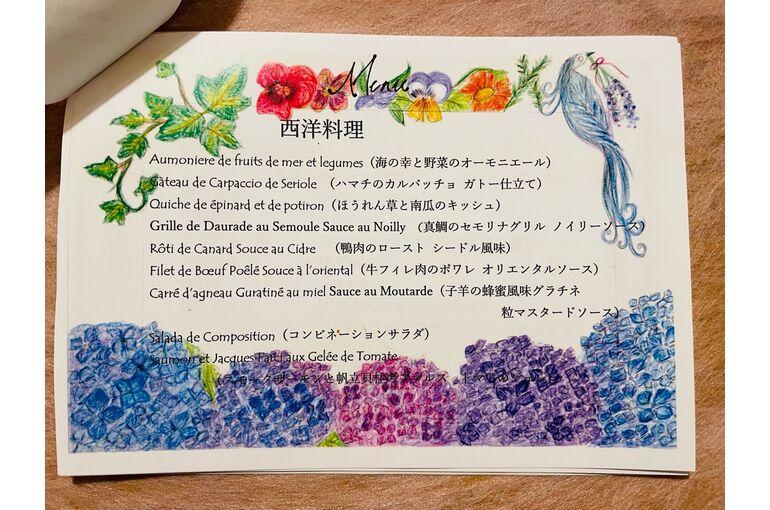 Menu
西洋料理
Aumoniere de fruits de mer et legumes（海の幸と野菜のオーモニエール）
Gâteau de Carpaccio de Seriole （ハマチのカルパッチョ ガトー仕立て）
Quiche de épinard et de potiron（ほうれん草と南瓜のキッシュ）
Grille de Daurade au Semoule Sauce au Noilly （真鯛のセモリナグリル ノイリーソース）
Rôti de Canard Souce au Cidre （鴨肉のロースト シードル風味）
Filet de Bœuf Poêlé Souce à l'oriental（牛フィレ肉のポワレ オリエンタルソース）
Carré d'agneau Guratiné au miel Sauce au Moutarde（子羊の蜂蜜風味グラチネ
粒マスタードソース）
Salada de Composition（コンビネーションサラダ）
Saumon et Jacques Farci aux Gelée de Tomate
（スモークサーモンと帆立貝